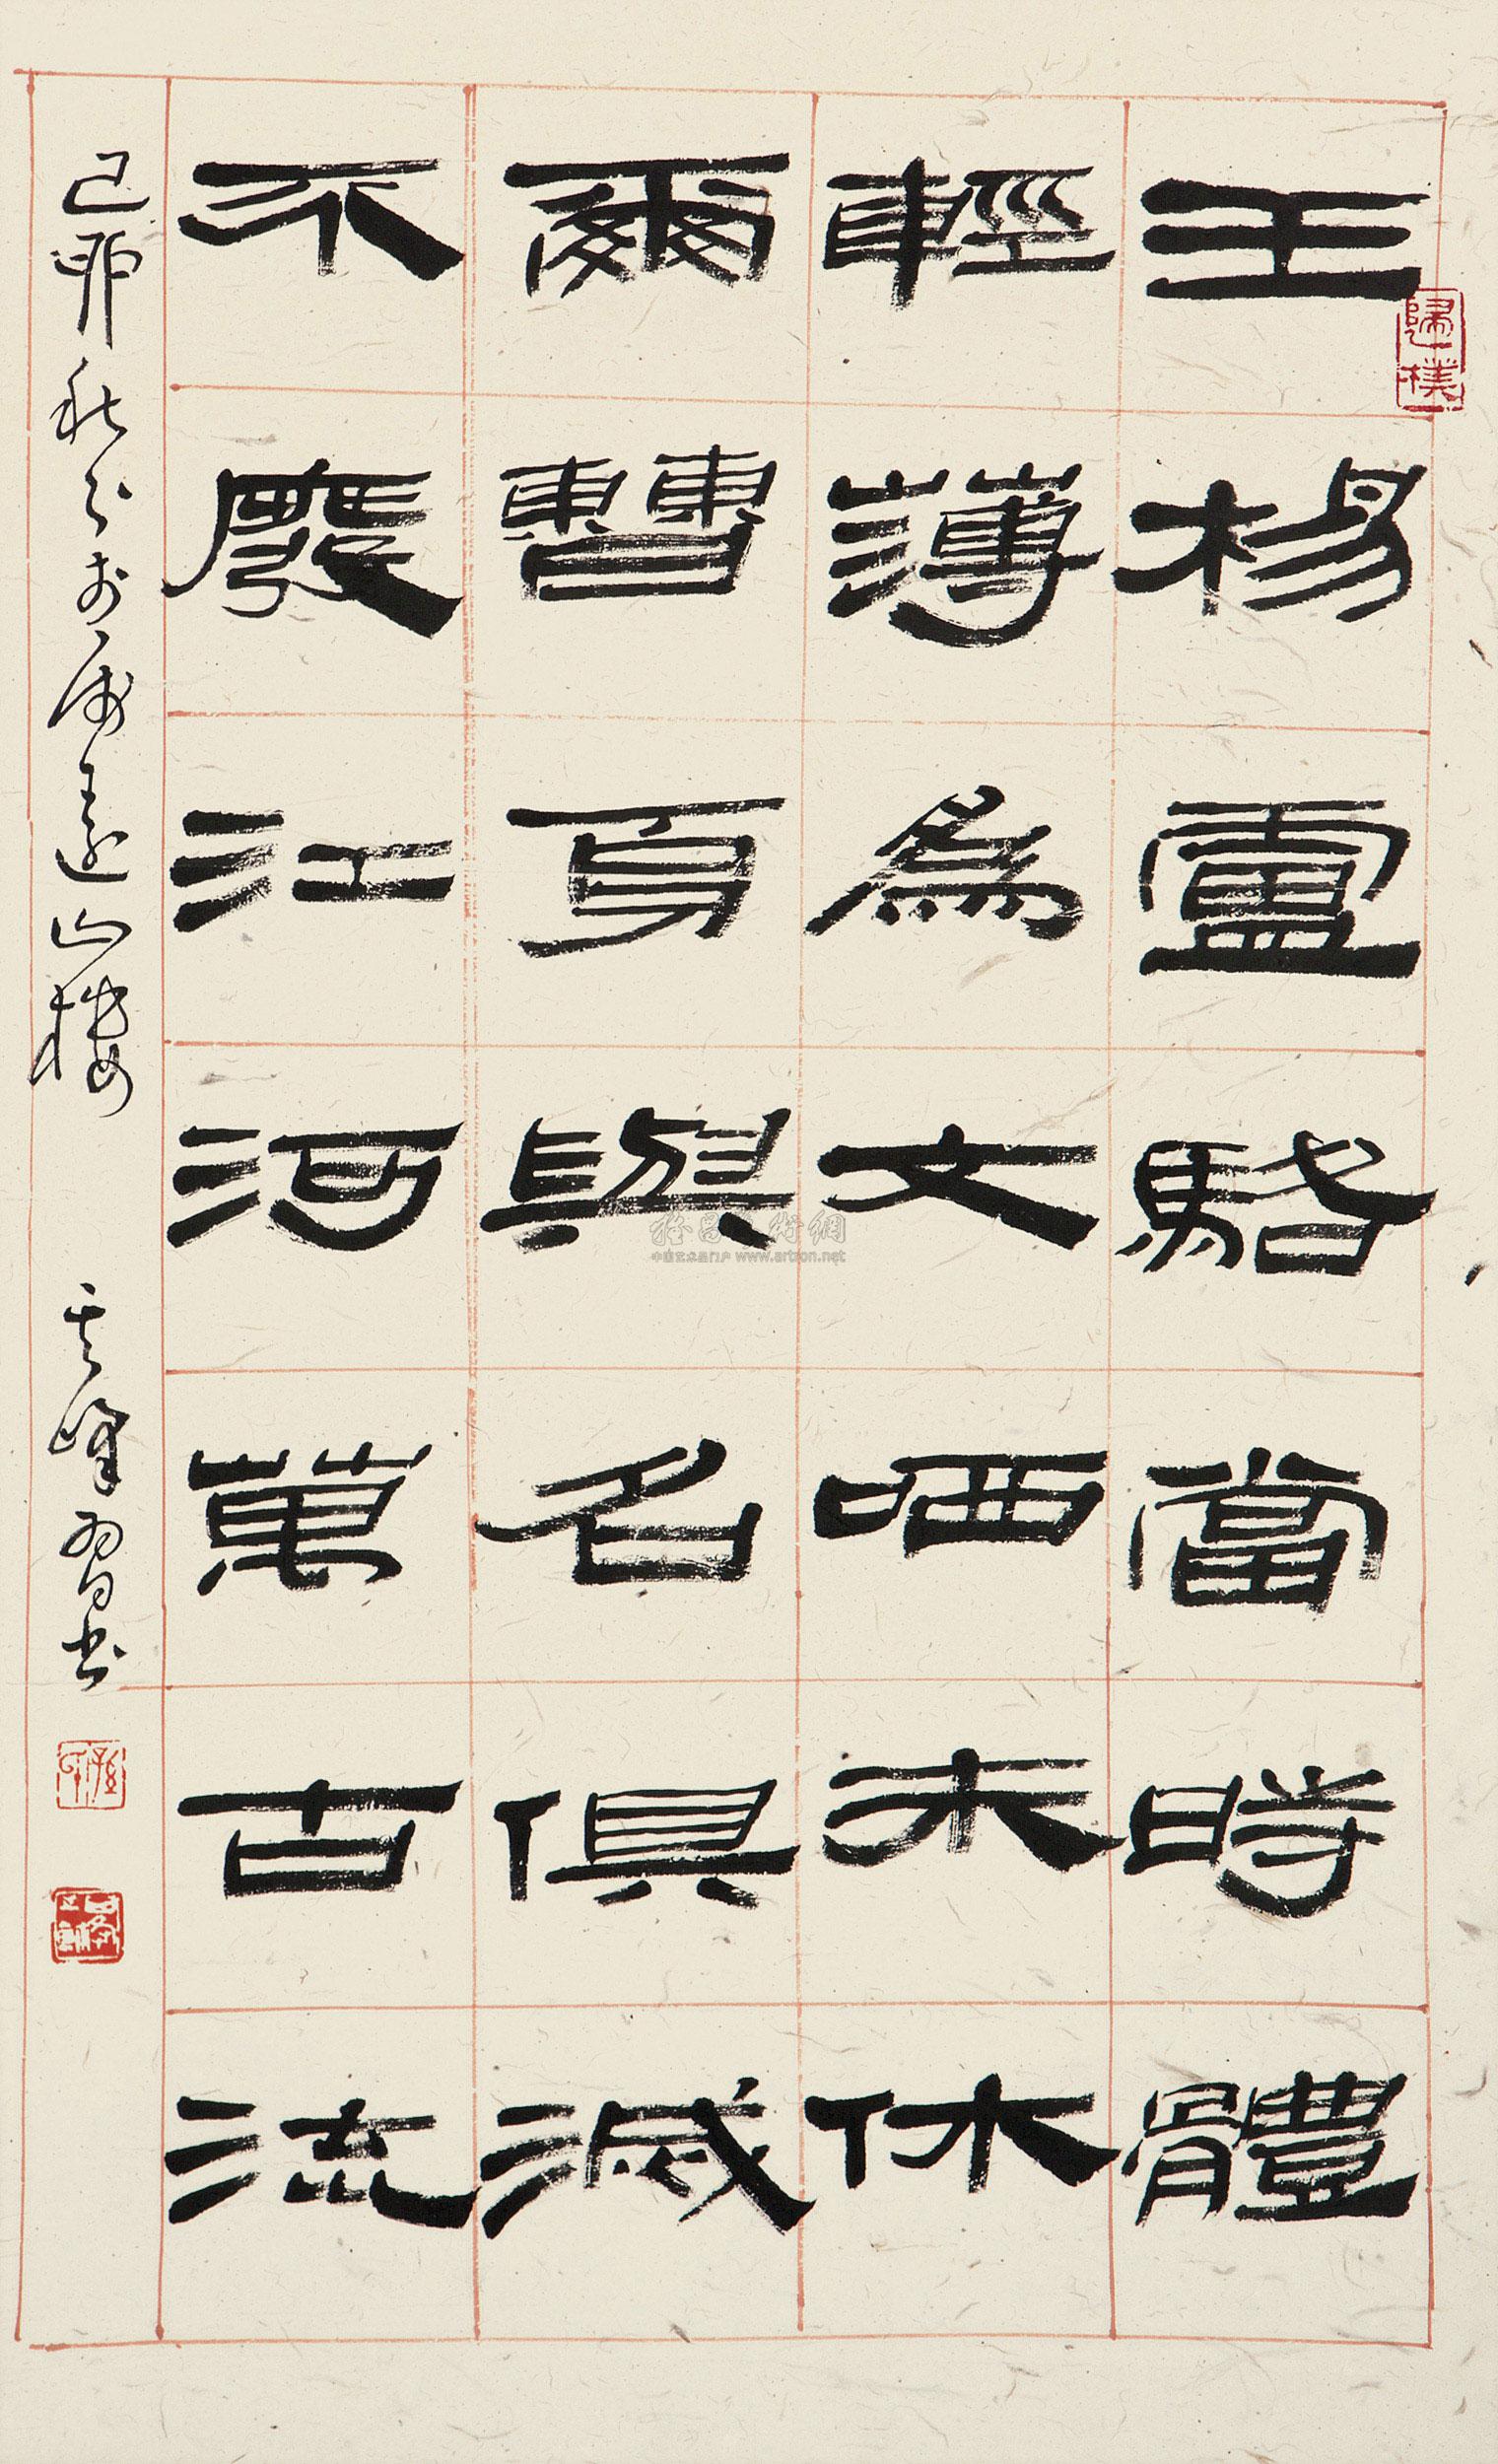 王楊盧駱當時體
輕薄為文哂未休
爾曹身與名俱滅
不廢江河萬古流
己卯秋於遠山樓 峰習書
歸樸
www.artron.net